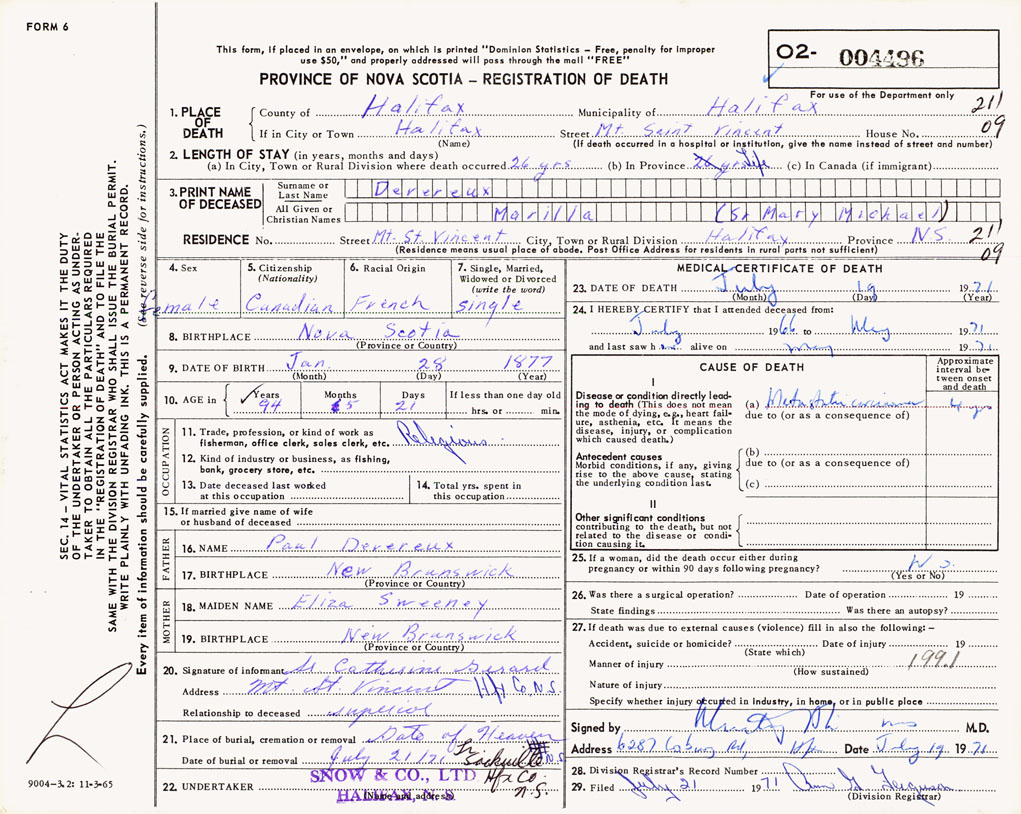 FORM 6
This form, if placed in an envelope, on which is printed "Dominion Statistics – Free, penalty for improper
use $50," and properly addressed will pass through the mail "FREE"
O2- 004496
PROVINCE OF NOVA SCOTIA – REGISTRATION OF DEATH
For use of the Department only
1. PLACE OF DEATH
County of Halifax Municipality of Halifax 211
If in City or Town Halifax Street Mt. Saint Vincent House No. 09
(Name) (If death occurred in a hospital or institution, give the name instead of street and number)
2. LENGTH OF STAY (in years, months and days)
(a) In City, Town or Rural Division where death occurred 26 yrs (b) In Province 26 yrs Life (c) In Canada (if immigrant)
3. PRINT NAME OF DECEASED
Surname or Last Name Devereux
All Given or Christian Names Marilla (Sr Mary Michael)
RESIDENCE No. Street Mt. St. Vincent City, Town or Rural Division Halifax Province N.S. 211
(Residence means usual place of abode. Post Office Address for residents in rural parts not sufficient) 09
4. Sex
Female
5. Citizenship (Nationality)
Canadian
6. Racial Origin
French
7. Single, Married, Widowed or Divorced (write the word)
single
8. BIRTHPLACE Nova Scotia
(Province or Country)
9. DATE OF BIRTH Jan. 28 1877
(Month) (Day) (Year)
10. AGE in Years 94 Months 5 Days 21 If less than one day old hrs. or min.
OCCUPATION
11. Trade, profession, or kind of work as fisherman, office clerk, sales clerk, etc. Religious
12. Kind of industry or business, as fishing, bank, grocery store, etc.
13. Date deceased last worked at this occupation
14. Total yrs. spent in this occupation
15. If married give name of wife
or husband of deceased
FATHER
16. NAME Paul Devereux
17. BIRTHPLACE New Brunswick
(Province or Country)
MOTHER
18. MAIDEN NAME Eliza Sweeney
19. BIRTHPLACE New Brunswick
(Province or Country)
20. Signature of informant Sr. Catherine Girard
Address Mt. St. Vincent Hfx Co. N.S.
Relationship to deceased superior
21. Place of burial, cremation or removal Gate of Heaven
Date of burial or removal July 21/71 Sackville N.S.
Hfx Co. N.S.
22. UNDERTAKER SNOW & CO., LTD
HALIFAX, N.S.
(Name and address)
MEDICAL CERTIFICATE OF DEATH
23. DATE OF DEATH July 19 1971
(Month) (Day) (Year)
24. I HEREBY CERTIFY that I attended deceased from:
July 1966 to May 1971
and last saw h alive on may 1971
CAUSE OF DEATH
Approximate interval between onset and death
I
Disease or condition directly leading to death (This does not mean the mode of dying, e.g., heart failure, asthenia, etc. It means the disease, injury, or complication which caused death.)
(a) Metastatic carcinoma 4 yrs
due to (or as a consequence of)
Antecedent causes
Morbid conditions, if any, giving rise to the above cause, stating the underlying condition last.
(b)
due to (or as a consequence of)
(c)
II
Other significant conditions
contributing to the death, but not related to the disease or condition causing it.
25. If a woman, did the death occur either during
pregnancy or within 90 days following pregnancy?
(Yes or No)
26. Was there a surgical operation? Date of operation 19
State findings Was there an autopsy?
27. If death was due to external causes (violence) fill in also the following:–
Accident, suicide or homicide? Date of injury 19
(State which)
Manner of injury 199.1
(How sustained)
Nature of injury
Specify whether injury occurred in industry, in home, or in public place
Signed by M.D.
Address 6287 Coburg Rd, Hfx. Date July 19 1971
28. Division Registrar's Record Number
29. Filed July 21 1971 Ann G Ferguson
(Division Registrar)
SEC. 14 – VITAL STATISTICS ACT MAKES IT THE DUTY
OF THE UNDERTAKER OR PERSON ACTING AS UNDER-
TAKER TO OBTAIN ALL THE PARTICULARS REQUIRED
IN THE "REGISTRATION OF DEATH" AND TO FILE THE
SAME WITH THE DIVISION REGISTRAR WHO SHALL ISSUE THE BURIAL PERMIT.
WRITE PLAINLY WITH UNFADING INK. THIS IS A PERMANENT RECORD.
Every item of information should be carefully supplied. (See reverse side for instructions.)
9004–3.2: 11-3-65